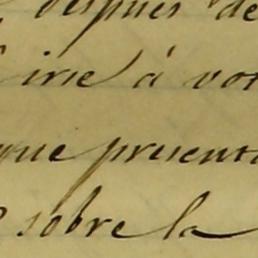 despues de
irse á vot
que presenta
sobre la